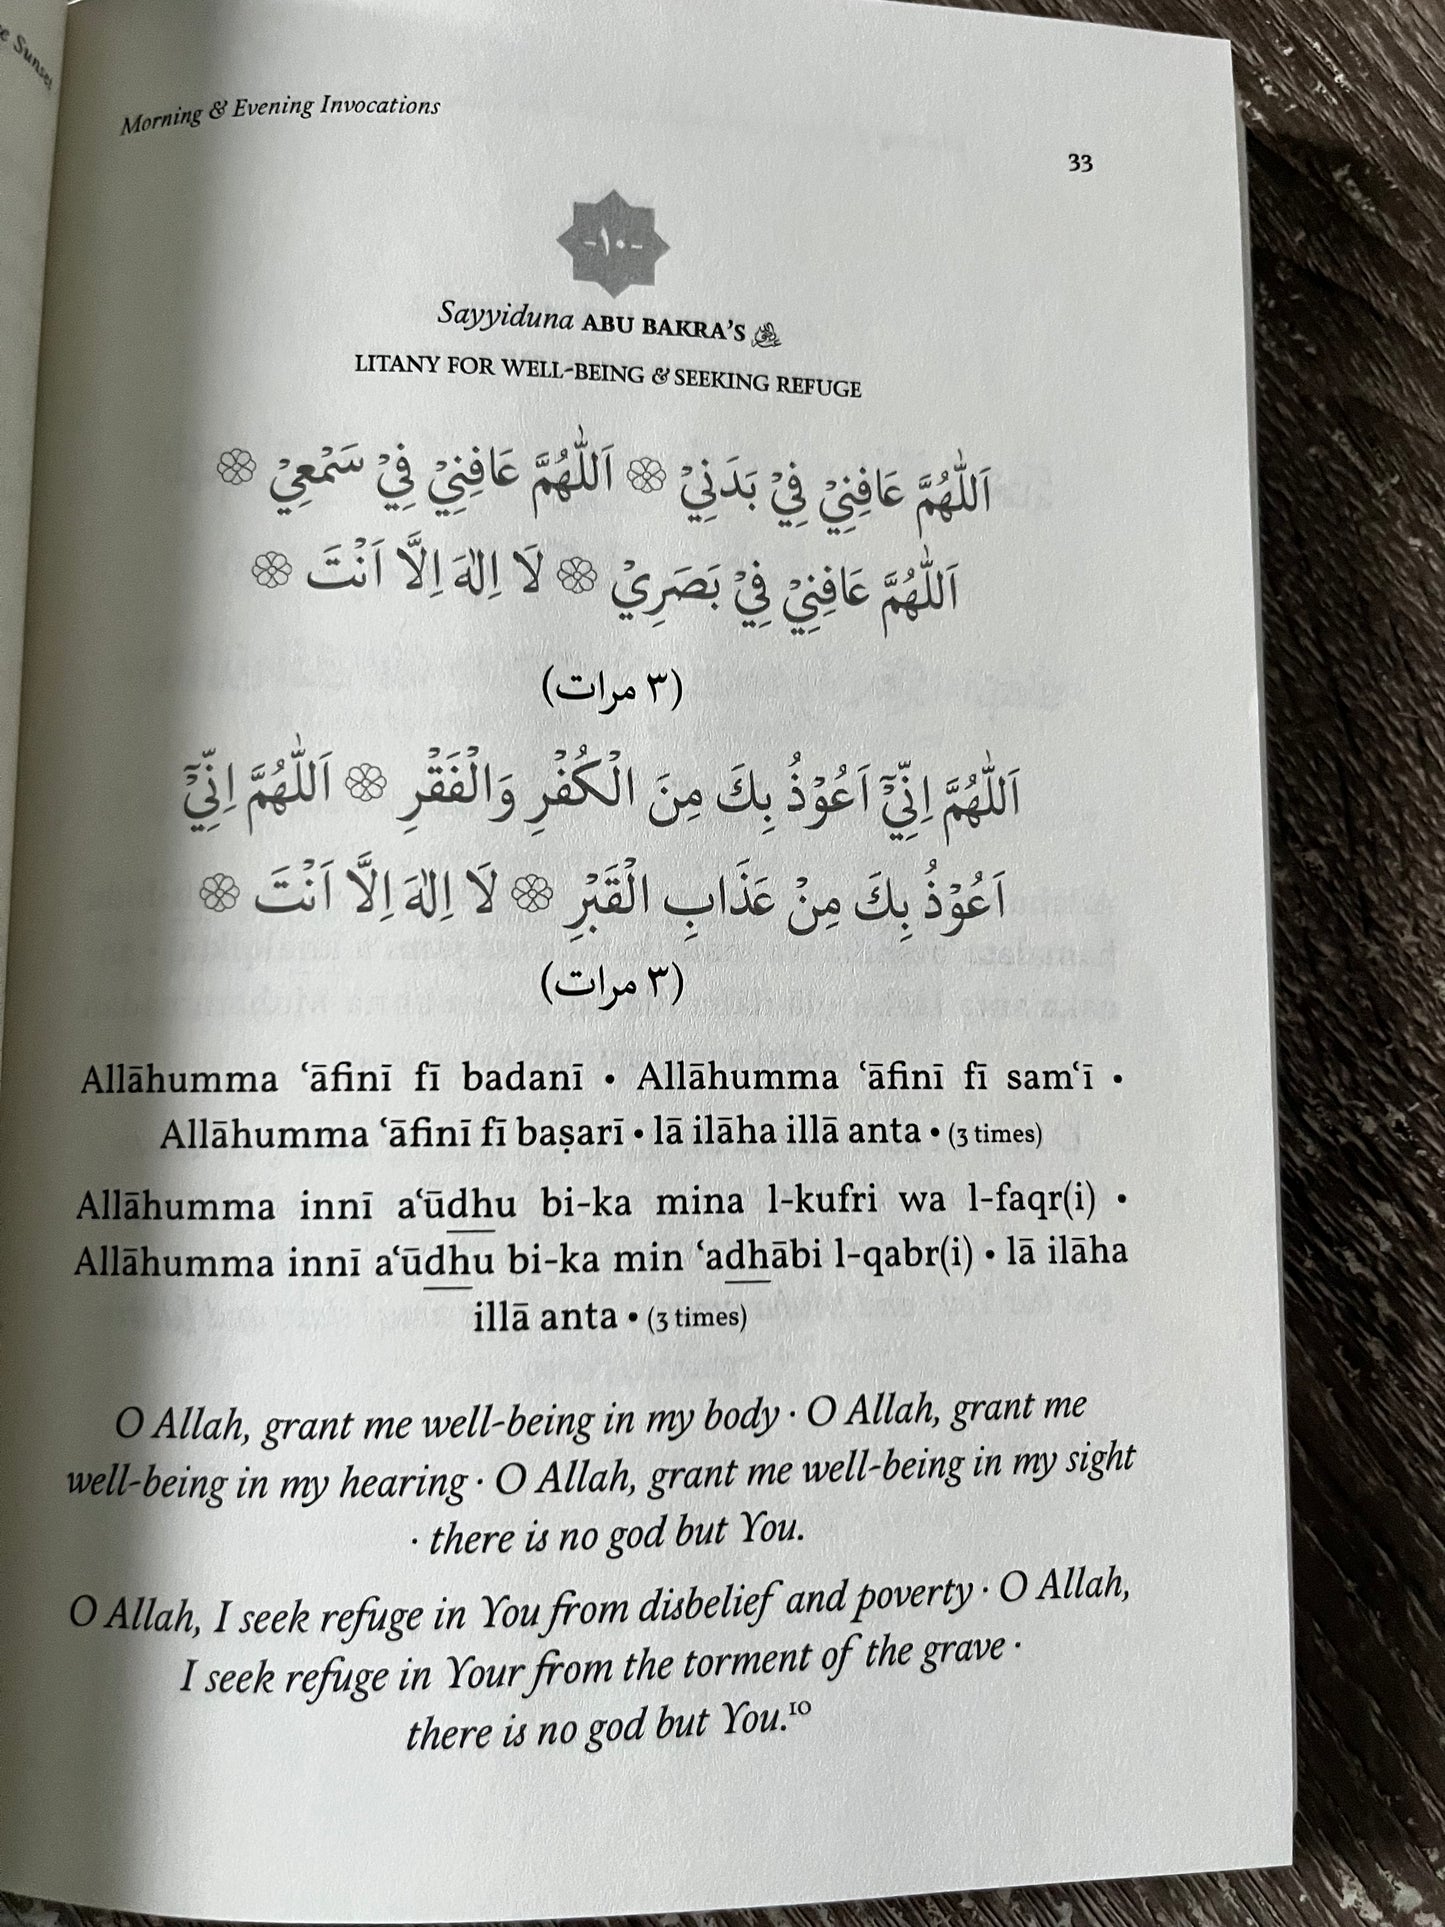 e Sunset
Morning & Evening Invocations
33
-١٠-
Sayyiduna ABU BAKRA'S
LITANY FOR WELL-BEING & SEEKING REFUGE
اَللّٰهُمَّ عَافِنِيْ فِيْ بَدَنِيْ ۞ اَللّٰهُمَّ عَافِنِيْ فِيْ سَمْعِيْ ۞
اَللّٰهُمَّ عَافِنِيْ فِيْ بَصَرِيْ ۞ لَا اِلٰهَ اِلَّا اَنْتَ ۞
(٣ مرات)
اَللّٰهُمَّ اِنِّيْٓ اَعُوْذُ بِكَ مِنَ الْكُفْرِ وَالْفَقْرِ ۞ اَللّٰهُمَّ اِنِّيْٓ
اَعُوْذُ بِكَ مِنْ عَذَابِ الْقَبْرِ ۞ لَا اِلٰهَ اِلَّا اَنْتَ ۞
(٣ مرات)
Allāhumma ʿāfinī fī badanī • Allāhumma ʿāfinī fī samʿī •
Allāhumma ʿāfinī fī baṣarī • lā ilāha illā anta • (3 times)
Allāhumma innī aʿūdhu bi-ka mina l-kufri wa l-faqr(i) •
Allāhumma innī aʿūdhu bi-ka min ʿadhābi l-qabr(i) • lā ilāha
illā anta • (3 times)
O Allah, grant me well-being in my body · O Allah, grant me
well-being in my hearing · O Allah, grant me well-being in my sight
· there is no god but You.
O Allah, I seek refuge in You from disbelief and poverty · O Allah,
I seek refuge in Your from the torment of the grave ·
there is no god but You.¹⁰